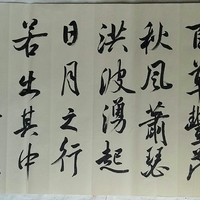 百草豐茂
秋風蕭瑟
洪波湧起
日月之行
若出其中